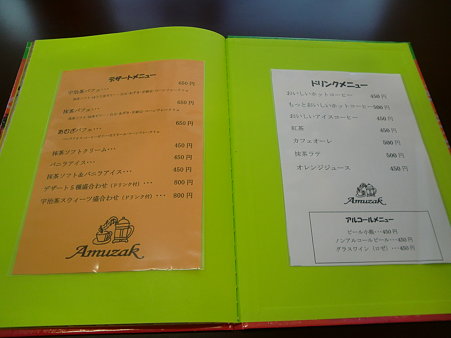 デザートメニュー
宇治茶パフェ･･･ 650円
抹茶パフェ･･･ 650円
あむざパフェ･･･ 650円
抹茶ソフトクリーム･･･ 450円
バニラアイス･･･ 450円
抹茶ソフト＆バニラアイス･･･ 450円
デザート5種盛合わせ（ドリンク付）･･･ 800円
宇治茶スウィーツ盛合わせ（ドリンク付）･･･ 800円
Amuzak
ドリンクメニュー
おいしいホットコーヒー 450円
もっとおいしいホットコーヒー 500円
おいしいアイスコーヒー 450円
紅茶 450円
カフェオーレ 500円
抹茶ラテ 500円
オレンジジュース 450円
Amuzak
アルコールメニュー
ビール小瓶･･･450円
ノンアルコールビール･･･450円
グラスワイン（ロゼ）･･･450円